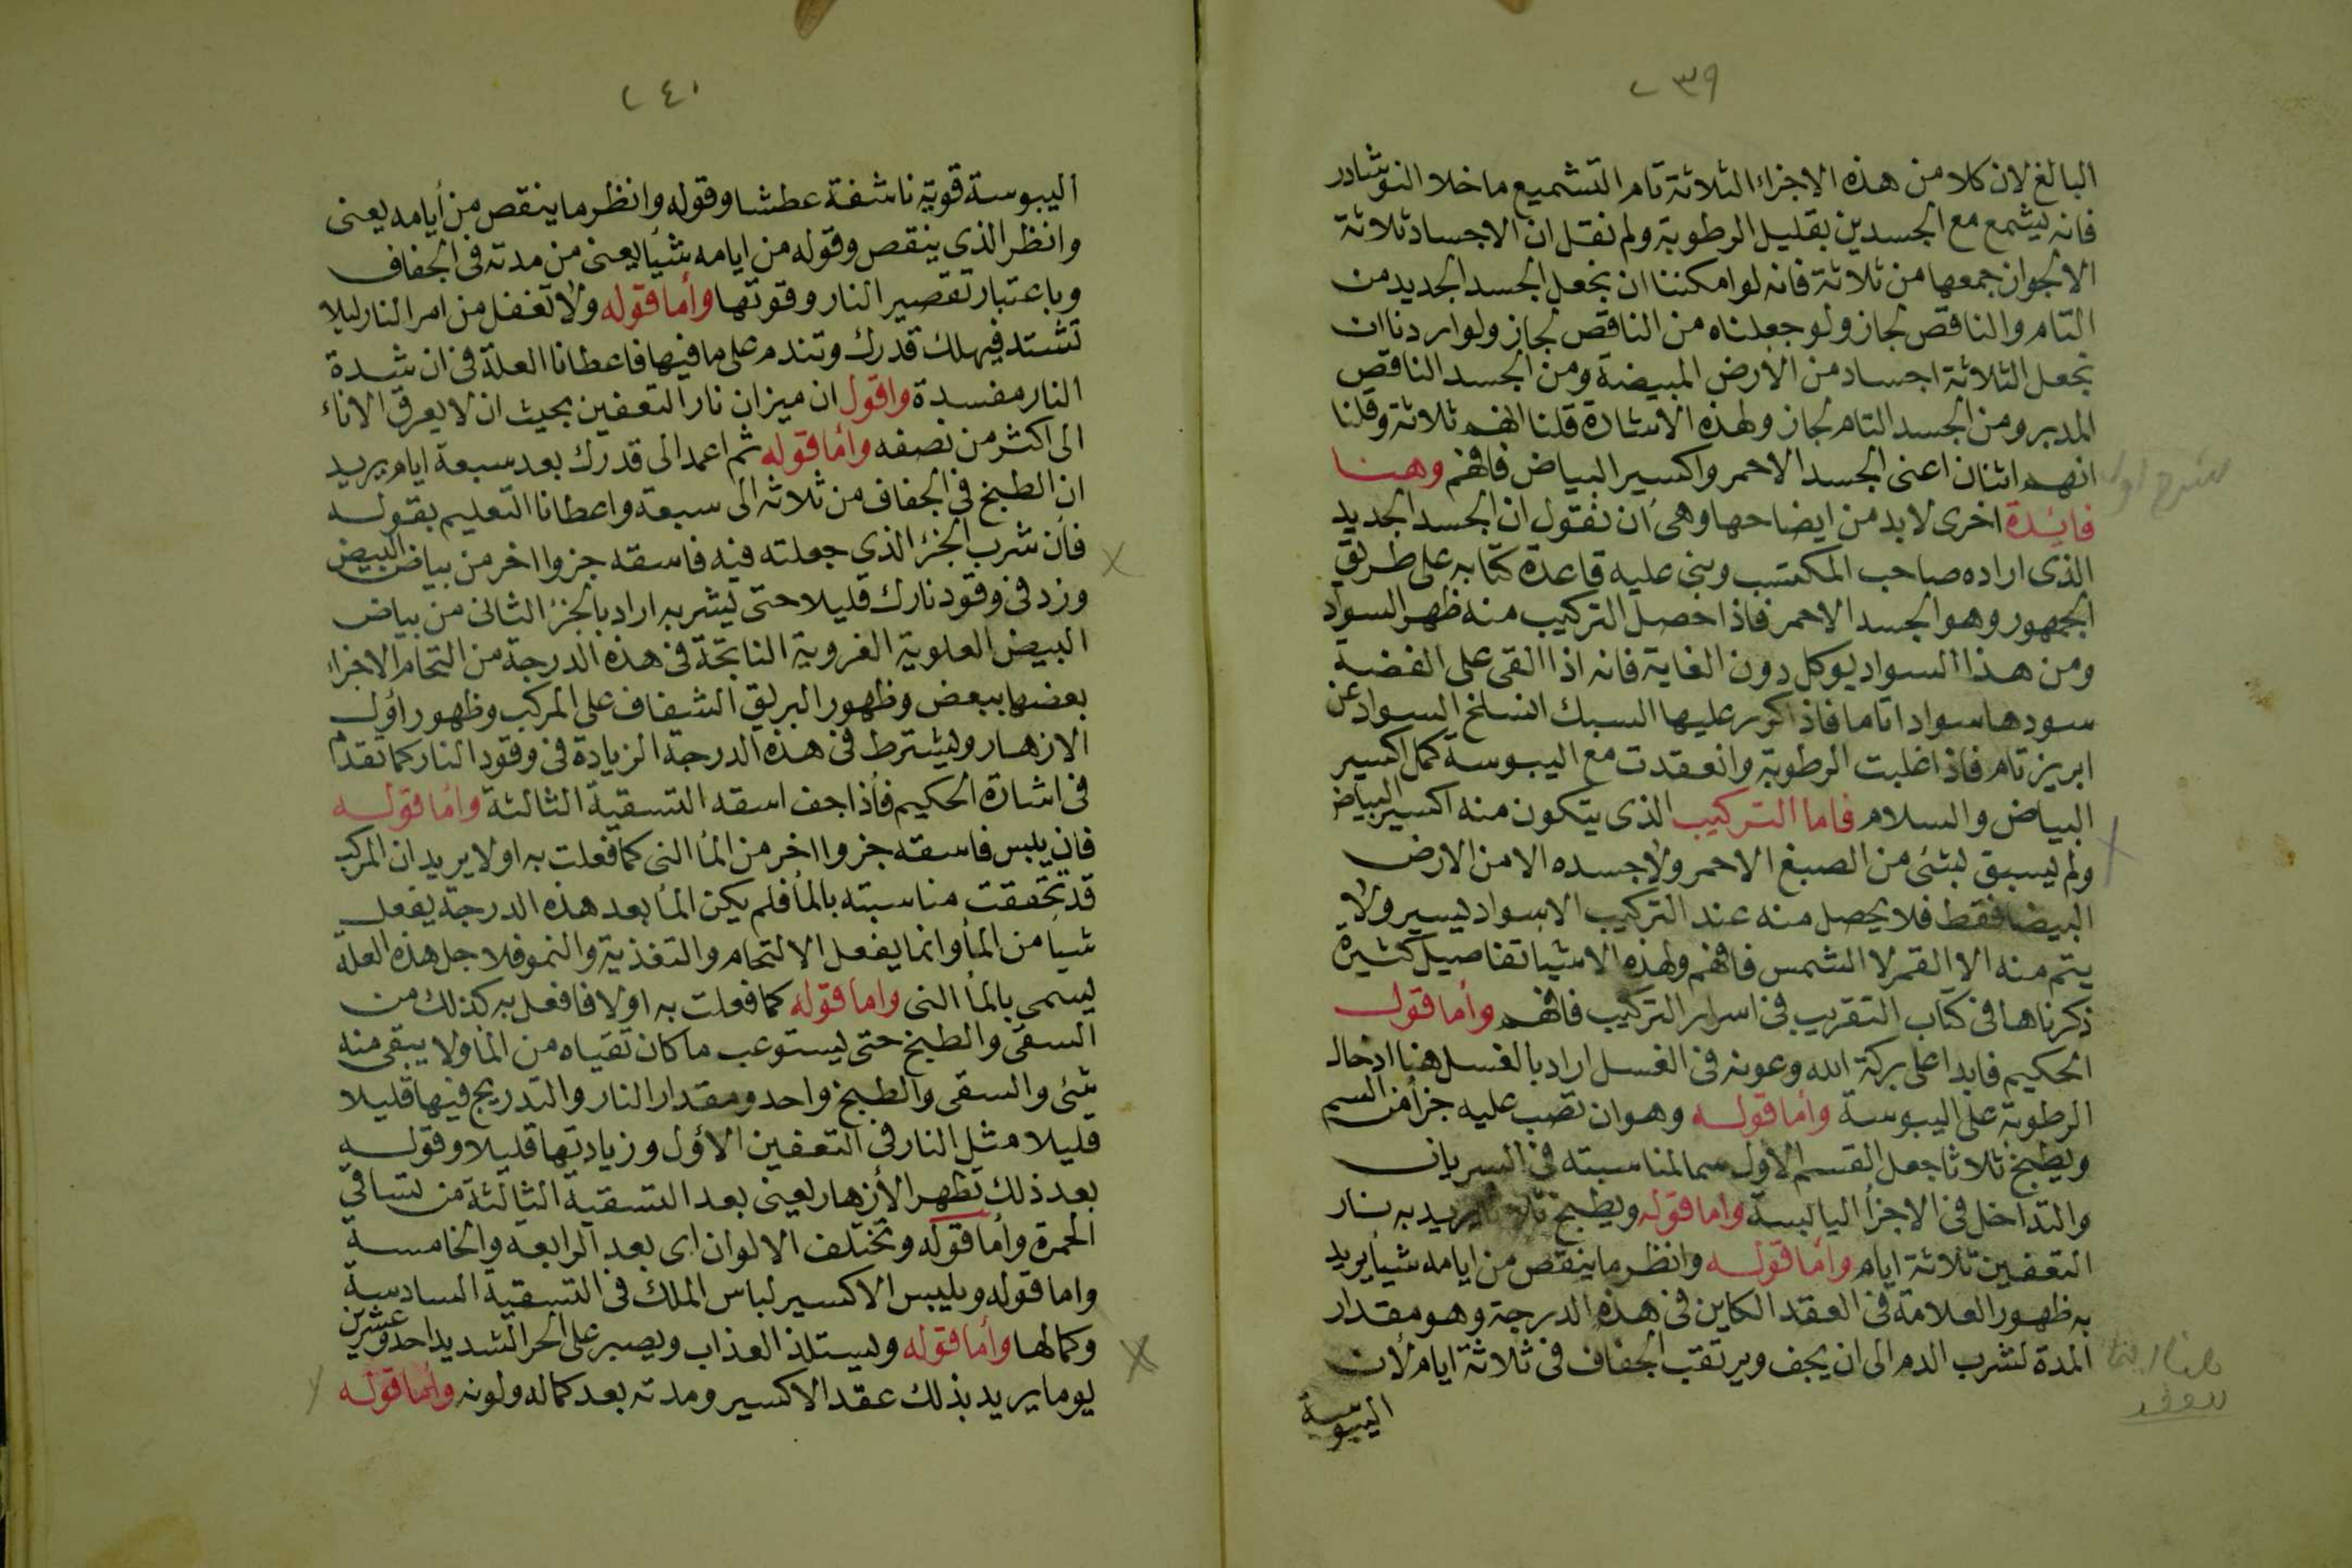 ٢٣٩
البالغ لان كلا من هذه الاجزاء الثلاثة تام التشميع ما خلا النوشادر
فانه يشمع مع الجسدين بقليل الرطوبة ولم نقل ان الاجساد ثلاثة
الا لجوان جمعها من ثلاثة فانه لو امكننا ان نجعل الجسد الجديد من
التام والناقص لجاز ولو جعلناه من الناقص لجاز ولو اردنا ان
نجعل الثلاثة اجساد من الأرض المبيضة ومن الجسد الناقص
المدبر ومن الجسد التام لجاز ولهذه الاشارة قلنا انهم ثلاثة وقلنا
انهم اثنان اعنى الجسد الاحمر واكسير البياض فافهم وهنا
فايدة اخرى لا بد من ايضاحها وهى أن نقول ان الجسد الجديد
الذى اراده صاحب المكتسب وبنى عليه قاعدة كتابه على طريق
الجمهور وهو الجسد الاحمر فاذا حصل التركيب منه ظهر السواد
ومن هذا السواد يوكل دون الغاية فانه اذا القى على الفضة
سودها سوادا تاما فاذا كرر عليها السبك انسلخ السواد عن
ابريز تام فاذا غلبت الرطوبة وانعقدت مع اليبوسة كمل اكسير
البياض والسلام فاما التركيب الذى يتكون منه اكسير البياض
ولم يسبق بشئ من الصبغ الاحمر ولا جسده الا من الارض
البيضا فقط فلا يحصل منه عند التركيب الا سواد يسير ولا
يتم منه الا القمر لا الشمس فافهم ولهذه الاشيا تفاصيل كثيرة
ذكرناها فى كتاب التقريب فى اسرار التركيب فافهم وأما قول
الحكيم فابدا على بركة الله وعونه فى الغسل اراد بالغسل هنا ادخال
الرطوبة على اليبوسة وأما قوله وهو ان تصب عليه جزأ من السم
ويطبخ ثلاثا جعل القسم الاول سما لمناسبته فى السريان
والتداخل فى الاجزأ اليابسة واما قوله ويطبخ يريد به نار
التعفين ثلاثة ايام وأما قوله وانظر ما ينقص من ايامه شيأ يريد
به ظهور العلامة فى العقد الكاين فى هذه الدرجة وهو مقدار
المدة لشرب الدم الى ان يجف ويرتقب الجفاف فى ثلاثة ايام لأن
اليبوسة
٢٤٠
اليبوسة قوية ناشفة عطشا وقوله وانظر ما ينقص من أيامه يعنى
وانظر الذى ينقص وقوله من ايامه شيأ يعنى من مدته فى الجفاف
وباعتبار تقصير النار وقوتها وأما قوله ولا تغفل من امر النار ليلا
تشتد فيهلك قدرك وتندم على ما فيها فاعطانا العلة فى ان شدة
النار مفسدة واقول ان ميزان نار التعفين بحيث ان لا يعرق الاناء
الى اكثر من نصفه وأما قوله ثم اعمد الى قدرك بعد سبعة ايام يريد
ان الطبخ فى الجفاف من ثلاثة الى سبعة واعطانا التعليم بقوله
فأن شرب الجزء الذى جعلته فيه فاسقه جزوا اخر من بياض البيض
وزد فى وقود نارك قليلا حتى يشربه اراد بالجزء الثانى من بياض
البيض العلوية الغروية الناتجة فى هذه الدرجة من التحام الاجزاء
بعضها ببعض وظهور البريق الشفاف على المركب وظهور أول
الازهار ويشترط فى هذه الدرجة الزيادة فى وقود النار كما تقدم
فى اشارة الحكيم فأذا جف اسقه التسقية الثالثة وأما قوله
فان يبس فاسقه جزوا اخر من المأ النى كما فعلت به اولا يريد ان المركب
قد تحققت مناسبته بالمأ فلم يكن المأ بعد هذه الدرجة يفعل
شيأ من المأ وانما يفعل الالتحام والتغذية والنمو فلاجل هذه العلة
يسمى بالمأ النى واما قوله كما فعلت به اولا فافعل به كذلك من
السقى والطبخ حتى يستوعب ما كان تقياه من المأ ولا يبقى منه
شئ والسقى والطبخ واحد ومقدار النار والتدريج فيها قليلا
قليلا مثل النار فى التعفين الأول وزيادتها قليلا وقوله
بعد ذلك تظهر الأزهار يعنى بعد التسقية الثالثة من تساقى
الحمرة وأما قوله وتختلف الالوان اى بعد الرابعه والخامسة
واما قوله ويلبس الاكسير لباس الملك فى التسقية السادسة
وكمالها وأما قوله ويستلذ العذاب ويصبر على الحر الشديد احد وعشرين
يوما يريد بذلك عقد الاكسير ومدته بعد كماله ولونه وأما قوله